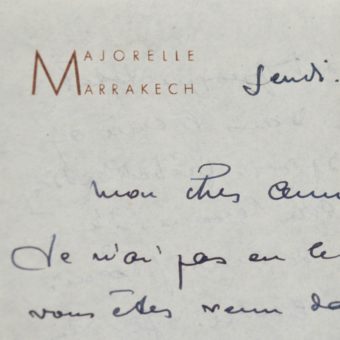 MAJORELLE
MARRAKECH
Jeudi.
mon cher
Je n'ai pas eu le
vous êtes venu da